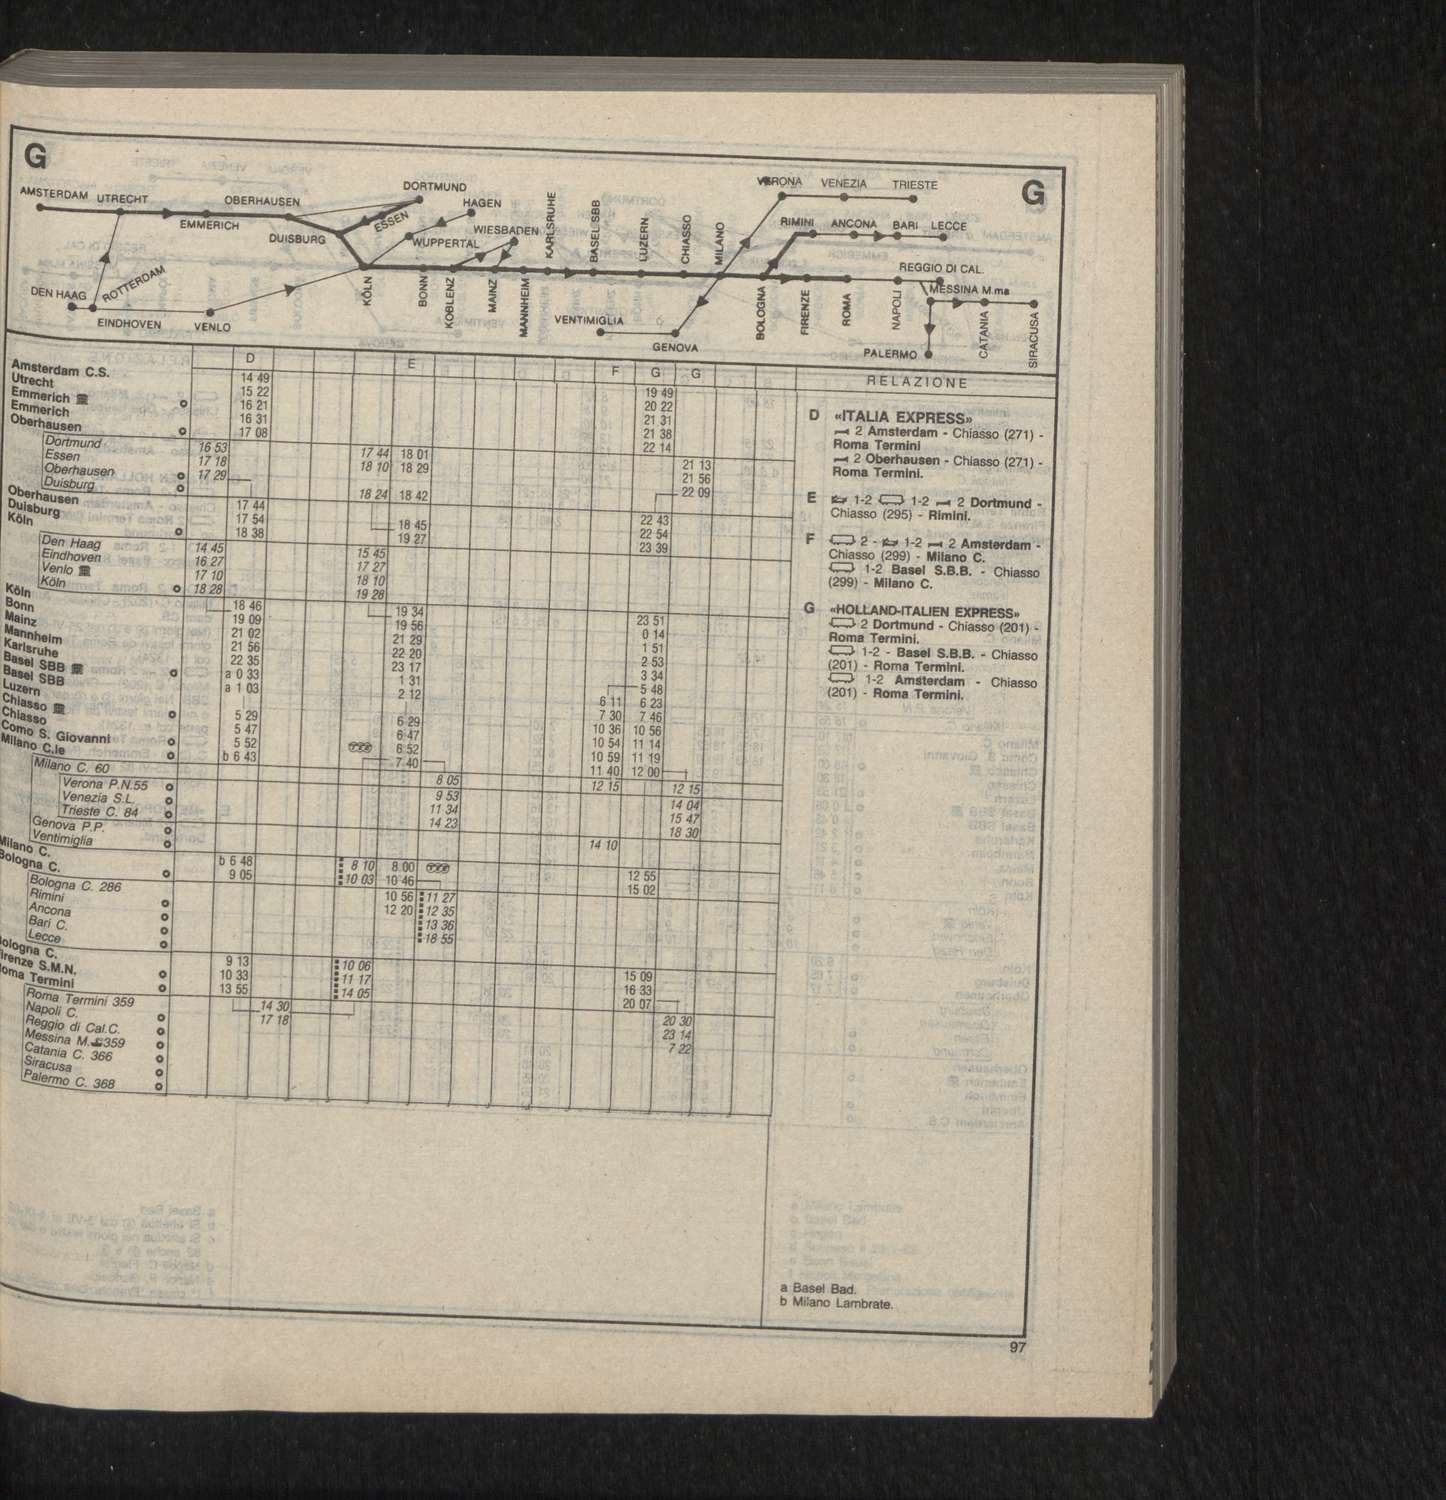 G
G
AMSTERDAM UTRECHT OBERHAUSEN DORTMUND
EMMERICH DUISBURG ESSEN HAGEN
WUPPERTAL WIESBADEN
DEN HAAG ROTTERDAM
EINDHOVEN VENLO
KÖLN BONN KOBLENZ MAINZ MANNHEIM KARLSRUHE BASEL SBB LUZERN CHIASSO MILANO
VENTIMIGLIA GENOVA
VERONA VENEZIA TRIESTE
RIMINI ANCONA BARI LECCE
BOLOGNA FIRENZE ROMA NAPOLI
REGGIO DI CAL.
MESSINA M.ma
PALERMO CATANIA SIRACUSA
D E F G G
Amsterdam C.S. 14 49 19 49
Utrecht 15 22 20 22
Emmerich 16 21 21 31
Emmerich 16 31 21 38
Oberhausen 17 08 22 14
Dortmund 16 53 17 44 18 01 21 13
Essen 17 18 18 10 18 29 21 56
Oberhausen 17 29 22 09
Duisburg 18 24 18 42
Oberhausen 17 44 22 43
Duisburg 17 54 18 45 22 54
Köln 18 38 19 27 23 39
Den Haag 14 45 15 45
Eindhoven 16 27 17 27
Venlo 17 10 18 10
Köln 18 28 19 28
Köln 18 46 19 34 23 51
Bonn 19 09 19 56 0 14
Mainz 21 02 21 29 1 51
Mannheim 21 56 22 20 2 53
Karlsruhe 22 35 23 17 3 34
Basel SBB a 0 33 1 31 5 48
Basel SBB a 1 03 2 12 6 11 6 23
Luzern 7 30 7 46
Chiasso 5 29 6 29 10 36 10 56
Chiasso 5 47 6 47 10 54 11 14
Como S. Giovanni 5 52 6 52 10 59 11 19
Milano C.le b 6 43 7 40 11 40 12 00
Milano C. 60 8 05 12 15 12 15
Verona P.N.55 9 53 14 04
Venezia S.L. 11 34 15 47
Trieste C. 84 14 23 18 30
Genova P.P. 14 10
Ventimiglia
Milano C. b 6 48 8 10 8 00 12 55
Bologna C. 9 05 10 03 10 46 15 02
Bologna C. 286 10 56 11 27
Rimini 12 20 12 35
Ancona 13 36
Bari C. 18 55
Lecce
Bologna C. 9 13 10 06 15 09
Firenze S.M.N. 10 33 11 17 16 33
Roma Termini 13 55 14 05 20 07
Roma Termini 359 14 30 20 30
Napoli C. 17 18 23 14
Reggio di Cal.C. 7 22
Messina M. 359
Catania C. 366
Siracusa
Palermo C. 368
RELAZIONE
D «ITALIA EXPRESS»
2 Amsterdam - Chiasso (271) -
Roma Termini
2 Oberhausen - Chiasso (271) -
Roma Termini.
E 1-2 1-2 2 Dortmund -
Chiasso (295) - Rimini.
F 2 - 1-2 2 Amsterdam -
Chiasso (299) - Milano C.
1-2 Basel S.B.B. - Chiasso
(299) - Milano C.
G «HOLLAND-ITALIEN EXPRESS»
2 Dortmund - Chiasso (201) -
Roma Termini.
1-2 - Basel S.B.B. - Chiasso
(201) - Roma Termini.
1-2 Amsterdam - Chiasso
(201) - Roma Termini.
a Basel Bad.
b Milano Lambrate.
97